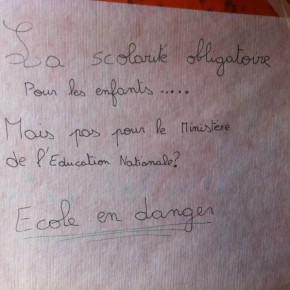 La scolarité obligatoire
Pour les enfants.....
Mais pas pour le Ministère
de l'Education Nationale?
Ecole en danger